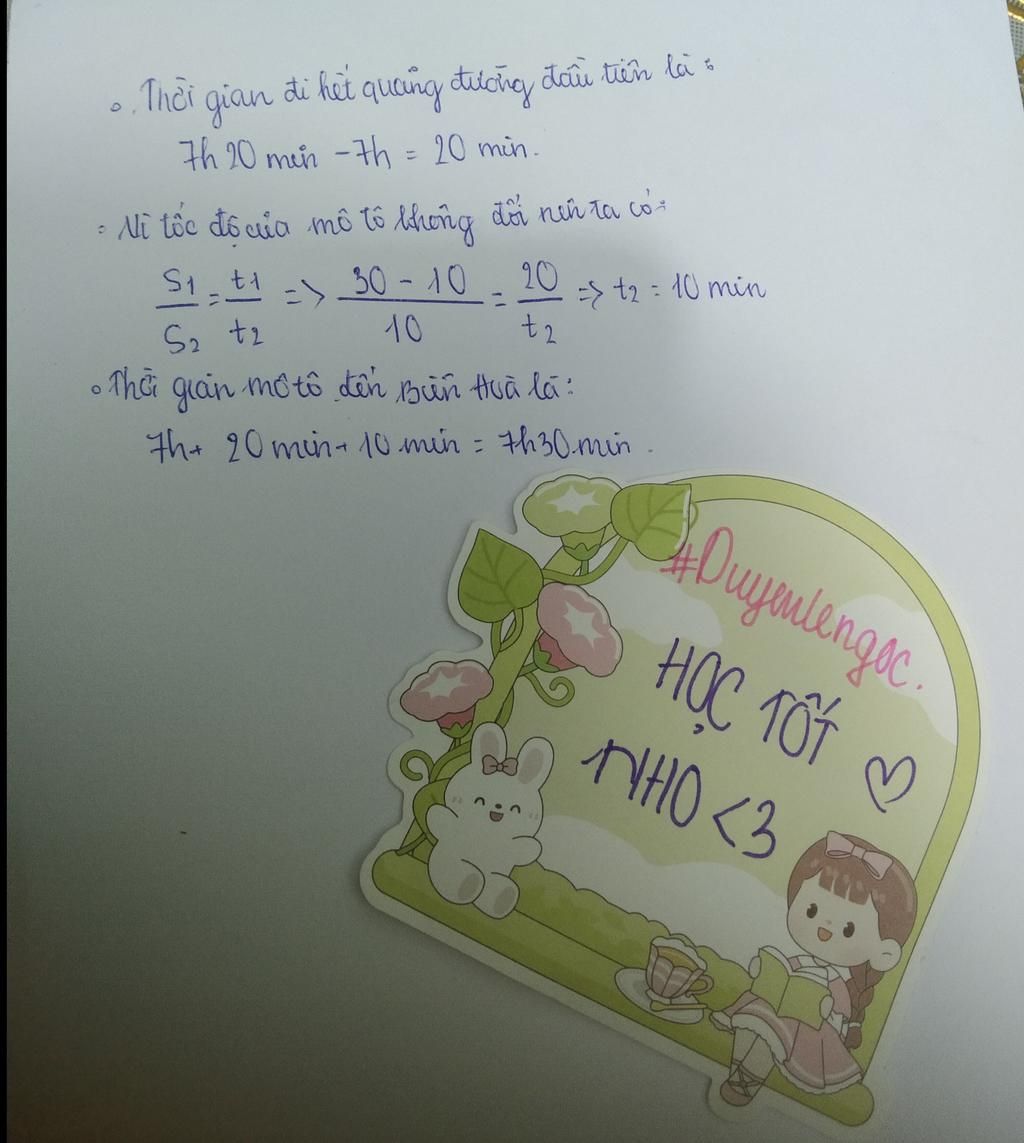 Thời gian đi hết quãng đường đầu tiên là:
7h20 min - 7h = 20 min.
Vì tốc độ của mô tô không đổi nên ta có:
S1/S2 = t1/t2 => 30 - 10/10 = 20/t2 => t2 = 10 min
Thời gian mô tô đến Biên Hoà là:
7h + 20 min + 10 min = 7h30 min.
#Duyenlengoc.
HỌC TỐT
NHO <3